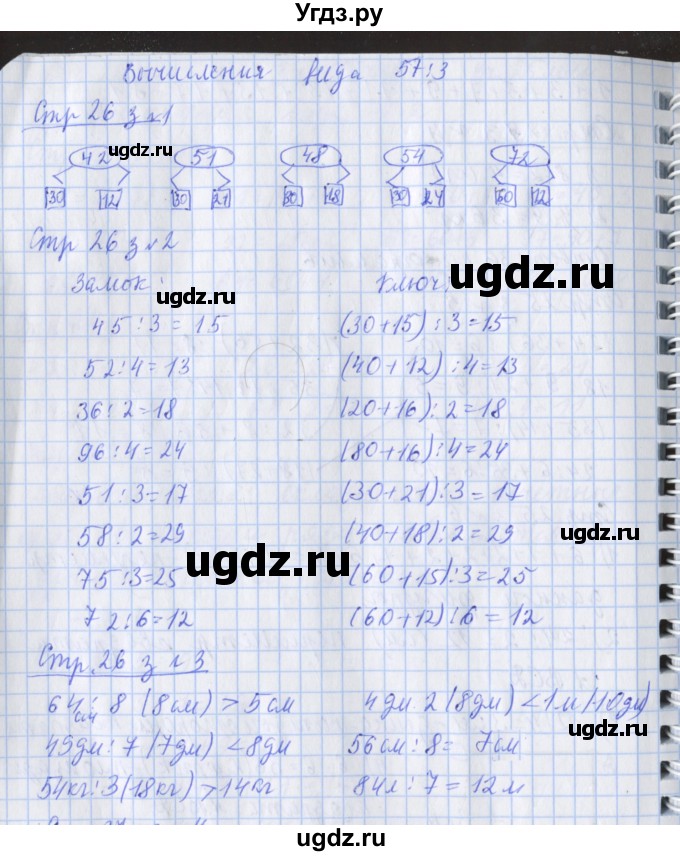 Угдз.ру
Вычисления вида 57:3
Стр 26 з №1
42 51 48 54 72
30 12 30 21 30 18 30 24 60 12
ugdz.ru
Стр 26 з №2
Замок: Ключ:
ugdz.ru
ugdz.ru
45:3=15 (30+15):3=15
52:4=13 (40+12):4=13
36:2=18 (20+16):2=18
96:4=24 (80+16):4=24
51:3=17 (30+21):3=17
58:2=29 (40+18):2=29
ugdz.ru
ugdz.ru
75:3=25 (60+15):3=25
72:6=12 (60+12):6=12
Стр. 26 з №3
ugdz.ru
64см: 8 (8см) > 5см 4дм 2 (8дм) < 1м (10дм)
49дм: 7 (7дм) < 8дм 56см: 8 = 7см
54кг: 3 (18кг) > 14кг 84л: 7 = 12л
ugdz.ru